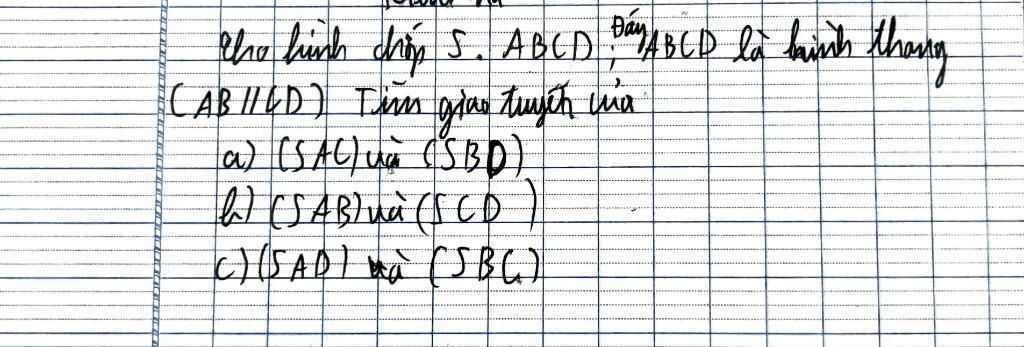 Cho hình chóp S. ABCD; Đáy ABCD là hình thang
(AB//CD) Tìm giao tuyến của
a) (SAC) và (SBD)
b) (SAB) và (SCD)
c) (SAD) và (SBC)